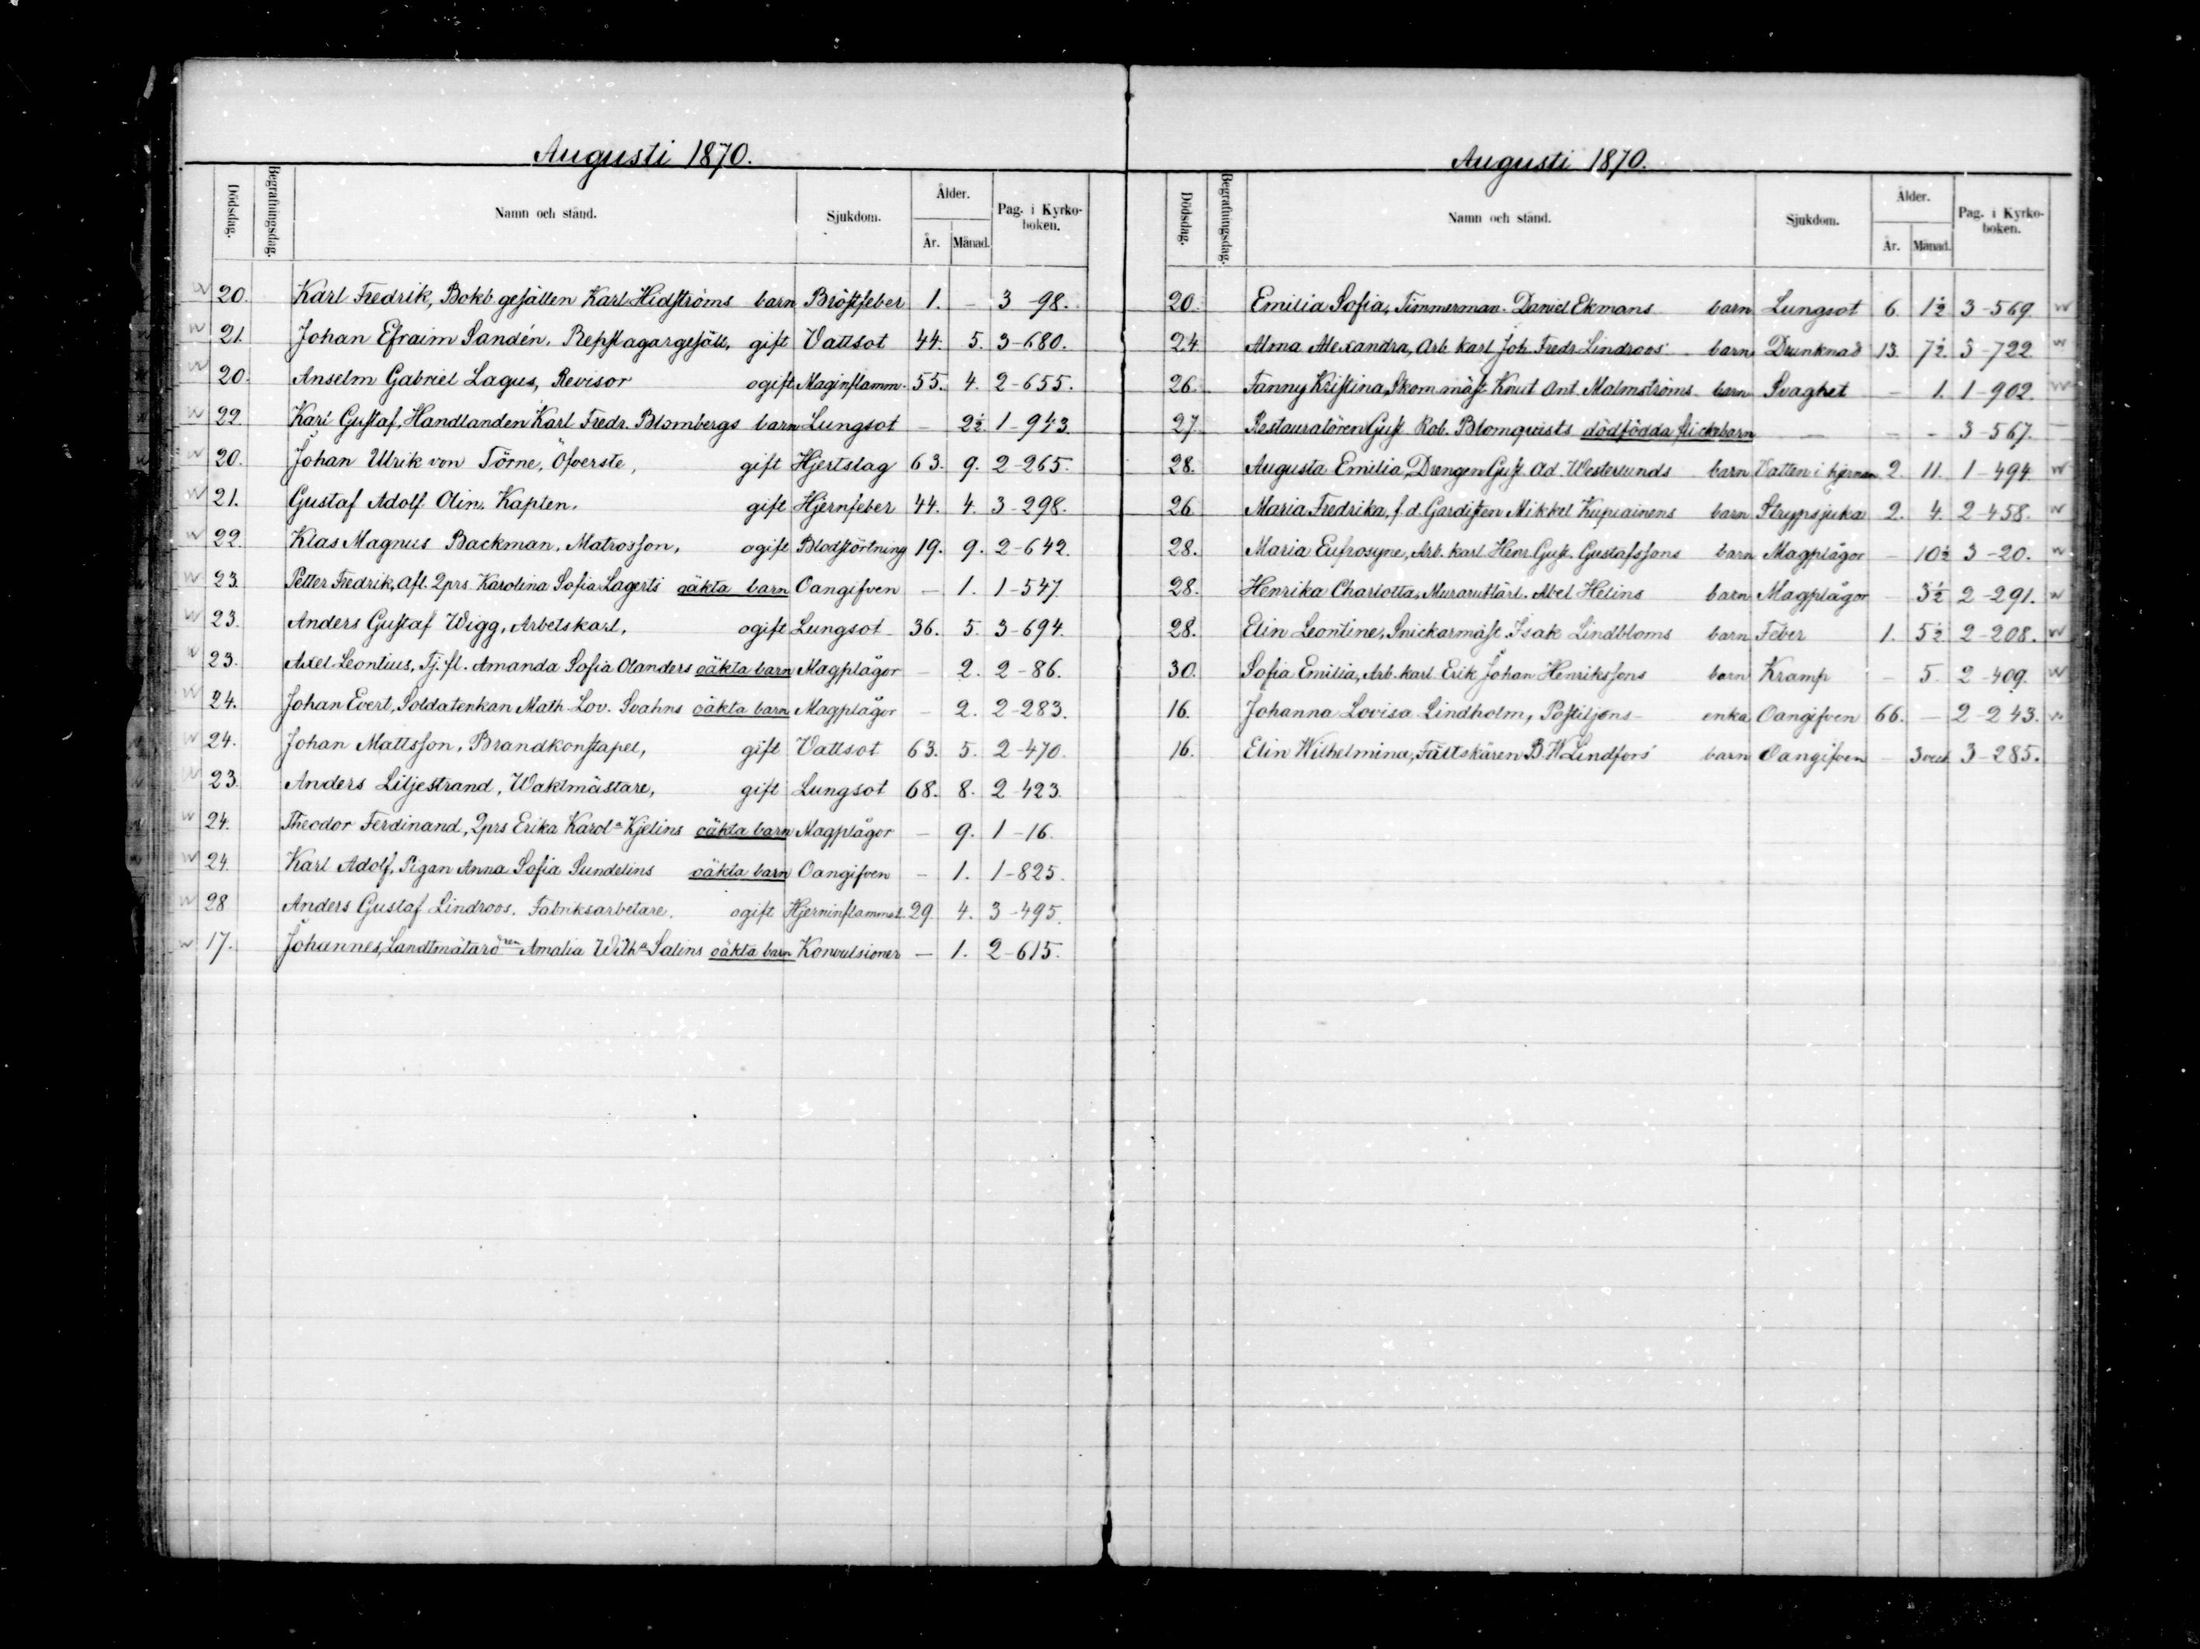 Augusti 1870.
Dödsdag. Begrafningsdag. Namn och stånd. Sjukdom. Ålder. År. Månad. Pag. i Kyrkoboken.
20. Karl Fredrik, Bokb. gesällen Karl Hidströms barn Bröstfeber 1. — 3-98.
21. Johan Efraim Sandén, Repslagargesäll, gift Vattsot 44. 5. 3-680.
20. Anselm Gabriel Lagus, Revisor ogift Maginflamm. 55. 4. 2-655.
22. Karl Gustaf, Handlanden Karl Fredr. Blombergs barn Lungsot — 2½ 1-943.
20. Johan Ulrik von Törne, Öfverste, gift Hjertslag 63. 9. 2-265.
21. Gustaf Adolf Olin, Kapten. gift Hjernfeber 44. 4. 3-298.
22. Klas Magnus Backman, Matrosson, ogift Blodstörtning 19. 9. 2-642.
23. Petter Fredrik, Afl. 2prs Karolina Sofia Lagerts oäkta barn Oangifven — 1. 1-547
23. Anders Gustaf Wigg, Arbetskarl, ogift Lungsot 36. 5. 3-694.
23. Axel Leontius, Tj. fl. Amanda Sofia Olanders oäkta barn Magplågor — 2. 2-86.
24. Johan Evert, Soldatenkan Math. Lov. Svahns oäkta barn Magplågor — 2. 2-283.
24. Johan Mattsson, Brandkonstapel, gift Vattsot 63. 5. 2-470.
23. Anders Liljestrand, Waktmästare, gift Lungsot 68. 8. 2-423.
24. Theodor Ferdinand, 2prs Erika Karolª Kjelins oäkta barn Magplågor — 9. 1-16.
24. Karl Adolf, Pigan Anna Sofia Sundelins oäkta barn Oangifven — 1. 1-825.
28 Anders Gustaf Lindroos, Fabriksarbetare, ogift Hjerninflammat. 29. 4. 3-495.
17. Johannes, Amalia Wilhª Salins oäkta barn Konvulsioner — 1. 2-615.
Augusti 1870.
Dödsdag. Begrafningsdag. Namn och stånd. Sjukdom. Ålder. År. Månad. Pag. i Kyrkoboken.
20. Emilia Sofia, Timmerman Daniel Ekmans barn Lungsot 6. 1½ 3-569
24. Alma Alexandra, Arb. karl Joh. Fredr. Lindroos' barn Drunknad 13. 7½ 3-722
26. Fanny Kristina, Skom. mäst. Knut Ant. Malmströms barn Svaghet — 1. 1-902.
27. Restauratören Gust. Rob. Blomqvists dödfödda flickobarn — — — 3-567.
28. Augusta Emilia, Drengen Gust. Ad. Westerlunds barn Vatten i hjernan 2. 11. 1-494
26. Maria Fredrika, f.d. Gardisten Mikkel Kupiainens barn Strypsjuka 2. 4. 2-458.
28. Maria Eufrosyne, Arb. karl Henr. Gust. Gustafssons barn Magplågor — 10½ 3-20.
28. Henrika Charlotta, Abel Helins barn Magplågor — 3½ 2-291.
28. Elin Leontine, Snickarmäst. Isak Lindbloms barn Feber 1. 5½ 2-208.
30. Sofia Emilia, Arb. karl Erik Johan Henrikssons barn Kramp — 5. 2-409.
16. Johanna Lovisa Lindholm, Postiljons enka Oangifven 66. — 2-243.
16. Elin Wilhelmina, Fältskären B. W. Lindfors' barn Oangifven — 3 veck. 3-285.